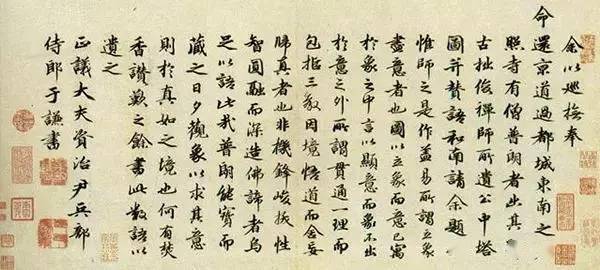 余以巡撫奉
命還京道過都城東南之
照寺有僧普朗者出其
古拙俊禪師所遺公中塔
圖并贊語和南請余題
惟師之是作蓋易所謂立象
盡意者也圖以立象而意已寓
於象之中言以顯意而象不出
於意之外所謂貫通一理而
包括三教因境悟道而舍妄
歸真者也非機鋒峻拔性
智圓融而深造佛諦者烏
足以語此哉普朗能寶而
藏之日夕觀象以求其意
則於真如之境也何有焚
香讚歎之餘書此數語以
遺之
正議大夫資治尹兵部
侍郎于謙書